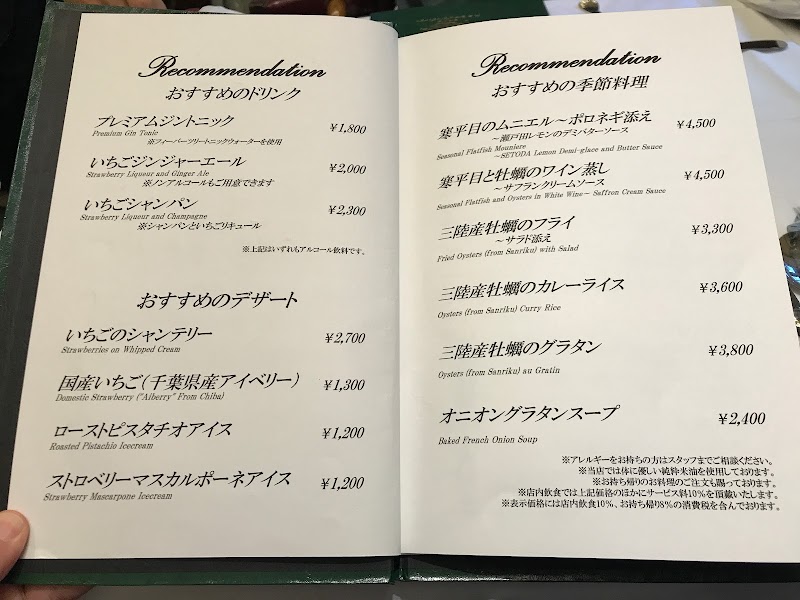 Recommendation
おすすめのドリンク
プレミアムジントニック ￥1,800
Premium Gin Tonic
※フィーバーツリートニックウォーターを使用
いちごジンジャーエール ￥2,000
Strawberry Liqueur and Ginger Ale
※ノンアルコールもご用意できます
いちごシャンパン ￥2,300
Strawberry Liqueur and Champagne
※シャンパンといちごリキュール
※上記はいずれもアルコール飲料です。
おすすめのデザート
いちごのシャンテリー ￥2,700
Strawberries on Whipped Cream
国産いちご（千葉県産アイベリー） ￥1,300
Domestic Strawberry ("Aiberry" From Chiba)
ローストピスタチオアイス ￥1,200
Roasted Pistachio Icecream
ストロベリーマスカルポーネアイス ￥1,200
Strawberry Mascarpone Icecream
Recommendation
おすすめの季節料理
寒平目のムニエル～ポロネギ添え ￥4,500
～瀬戸田レモンのデミバターソース
Seasonal Flatfish Mouniere
～SETODA Lemon Demi-glace and Butter Sauce
寒平目と牡蠣のワイン蒸し ￥4,500
～サフランクリームソース
Seasonal Flatfish and Oysters in White Wine～ Saffron Cream Sauce
三陸産牡蠣のフライ ￥3,300
～サラド添え
Fried Oysters (from Sanriku) with Salad
三陸産牡蠣のカレーライス ￥3,600
Oysters (from Sanriku) Curry Rice
三陸産牡蠣のグラタン ￥3,800
Oysters (from Sanriku) au Gratin
オニオングラタンスープ ￥2,400
Baked French Onion Soup
※アレルギーをお持ちの方はスタッフまでご相談ください。
※当店では体に優しい純粋米油を使用しております。
※お持ち帰りのお料理のご注文も賜っております。
※店内飲食では上記価格のほかにサービス料10％を頂戴いたします。
※表示価格には店内飲食10％、お持ち帰り8％の消費税を含んでおります。